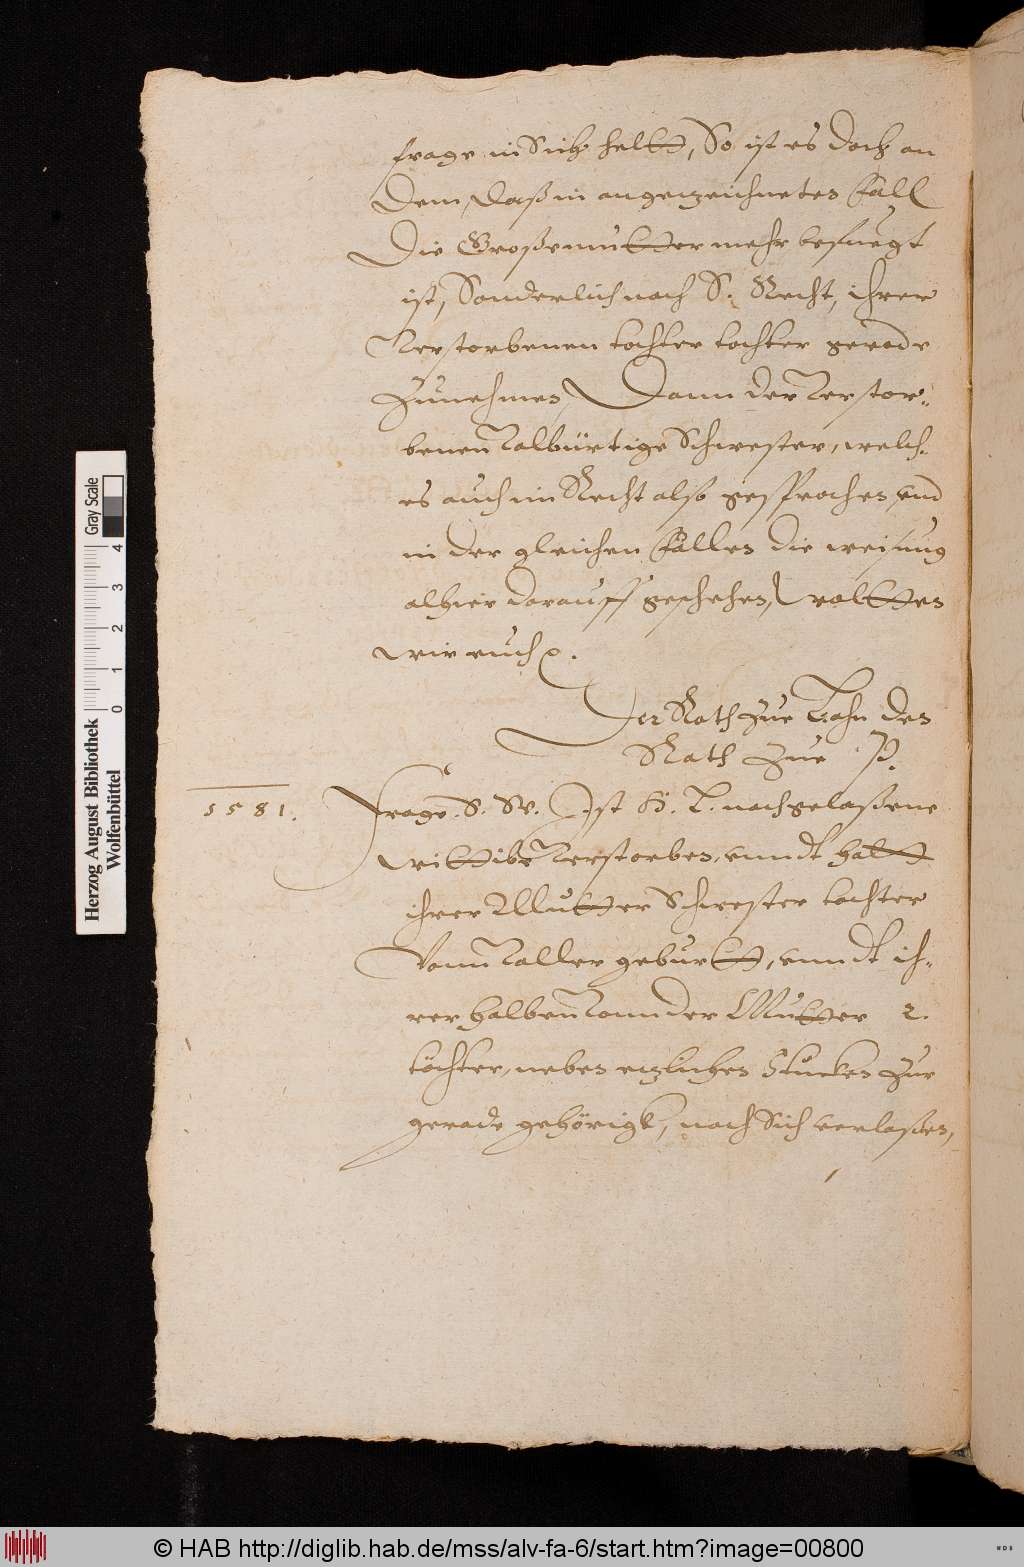 frage in Sich helt, So ist es doch an
Dem, daß in angezeichneten Fall
Die Großemutter mehr befuegt
ist, Sonderlich nach S. Recht, ihrer
Verstorbenen tochter tochter gerade
Zunehmen, Dann der Verstor-
benen Valbürtige Schwester, welch-
es auch im Recht also gesprochen, vnd
in der gleichen Fällen die weisung
alhier darauff geschehen,
wir euch
Der Rath zue den
Rath zue P.
1581.
Frage. S. W. Ist H. L. nachgelaßene
wittibe Verstorben, vnndt hatt
ihrer Mutter Schwester tochter
Vonn Voller geburtt, vnndt ih-
rer halben Vonn der Mutter 2.
töchter, neben etzlichen Stucken zur
gerade gehörigk, nach Sich verlaßen,
Herzog August Bibliothek
Wolfenbüttel
0 1 2 3 4
Gray Scale
© HAB http://diglib.hab.de/mss/alv-fa-6/start.htm?image=00800